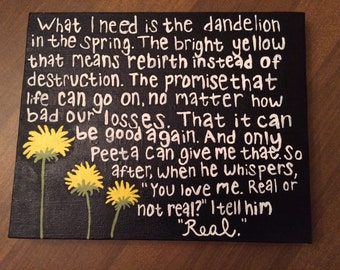 What I need is the dandelion
in the spring. The bright yellow
that means rebirth instead of
destruction. The promise that
life can go on, no matter how
bad our losses. That it can
be good again. And only
Peeta can give me that. So
after, when he whispers,
"You love me. Real or
not real?" I tell him
"Real."